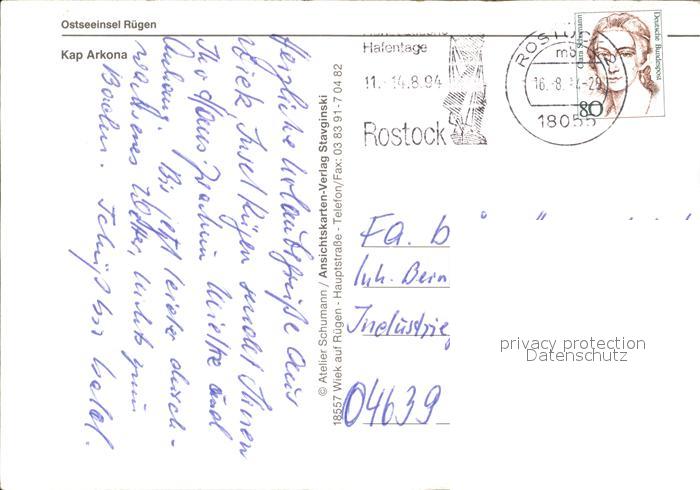 Ostseeinsel Rügen
Kap Arkona
Herzliche Urlaubsgrüße aus
Wiek Insel Rügen sendet Ihnen
Ihr Hans-Joachim und
Anhang. Bis jetzt leider durch-
wachsenes Wetter, nichts zum
Baden. Tschüß bis bald.
© Atelier Schumann / Ansichtskarten-Verlag Stavginski
18557 Wiek auf Rügen - Hauptstraße - Telefon/Fax: 03 83 91-7 04 82
Hafentage
11.-14.8.94
Rostock
ROSTOCK
16.-8.94-20
18055
Clara Schumann
Deutsche Bundespost
80
Fa. b
Inh. Bern
Industrieg
04639
privacy protection
Datenschutz